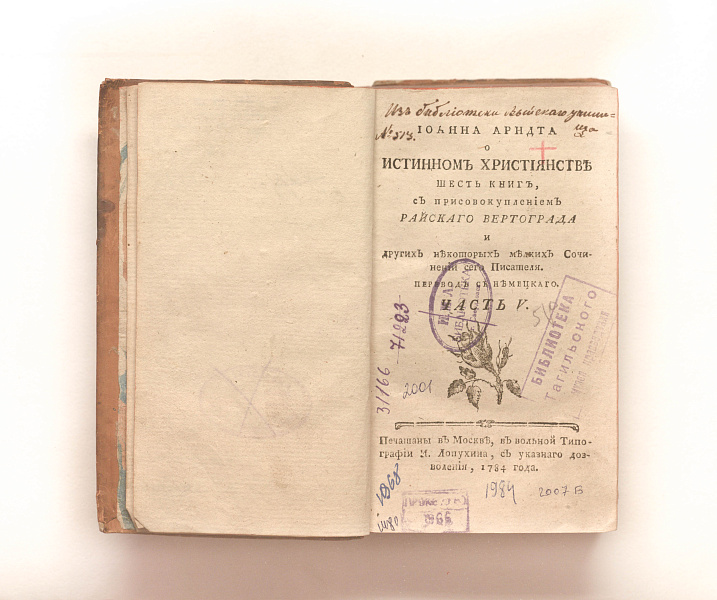 Изъ библіотеки Выйскаго учили=
ща
№ 513.
ІОАННА АРНДТА
О
ИСТИННОМЪ ХРИСТІЯНСТВѢ
ШЕСТЬ КНИГЪ,
съ присовокупленіемъ
РАЙСКАГО ВЕРТОГРАДА
и
другихъ нѣкоторыхъ мѣлкихъ Сочи-
неній сего Писателя.
ПЕРЕВОДЪ СЪ НѢМЕЦКАГО.
ЧАСТЬ V.
БИБЛИОТЕКА
БИБЛИОТЕКА
Тагильского
71223
31166
2001
Печатаны въ Москвѣ, въ вольной Типо-
графіи И. Лопухина, съ указнаго доз-
воленія, 1784 года.
1968
1984
2007 Б
1966